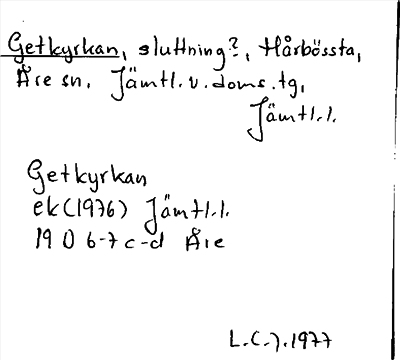 Getkyrkan, sluttning?, Hårbössta,
Åre sn. Jämtl. v. doms. tg,
Jämtl. l.
Getkyrkan
ek (1976) Jämtl. l.
19 D 6-7 c-d Åre
L.C.J. 1977